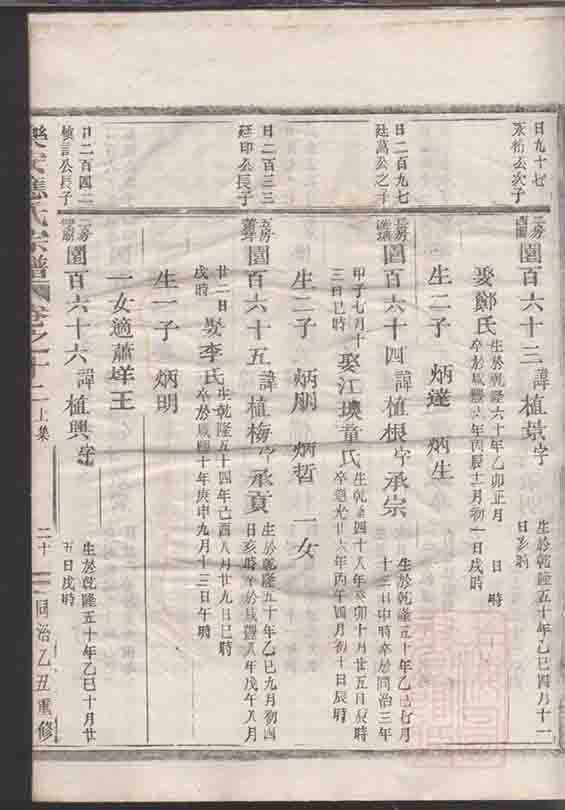 日九十七
永祐公次子
二房
園百六十三諱植景字
生於乾隆五十年乙巳四月十一
日亥時
娶鄭氏
生於乾隆六十年乙卯正月 日 時
卒於咸豐六年丙辰十二月初一日戌時
生二子 炳達 炳生
日二百九七
廷萬公之子
長房
園百六十四諱植根字承宗
生於乾隆五十年乙巳七月
十三日申時卒於同治三年
甲子七月十
三日巳時
娶江塽童氏
生乾隆四十八年癸卯十月廿五日辰時
卒道光廿六年丙午四月初十日辰時
生二子 炳朋 炳哲 一女
日二百三三
廷印公長子
五房
園百六十五諱植梅字承貢
生於乾隆五十年乙巳九月初四
日亥時卒於咸豐八年戊午八月
廿二日
戌時
娶李氏
生乾隆五十四年己酉八月廿九日巳時
卒於咸豐十年庚申九月十三日午時
生一子 炳明
一女適蕭垟王
日二百四二
慎言公長子
二房
園百六十六諱植興字
生於乾隆五十年乙巳十月廿
五日戌時
應氏宗譜
卷之十二上集
二十
同治乙丑重修